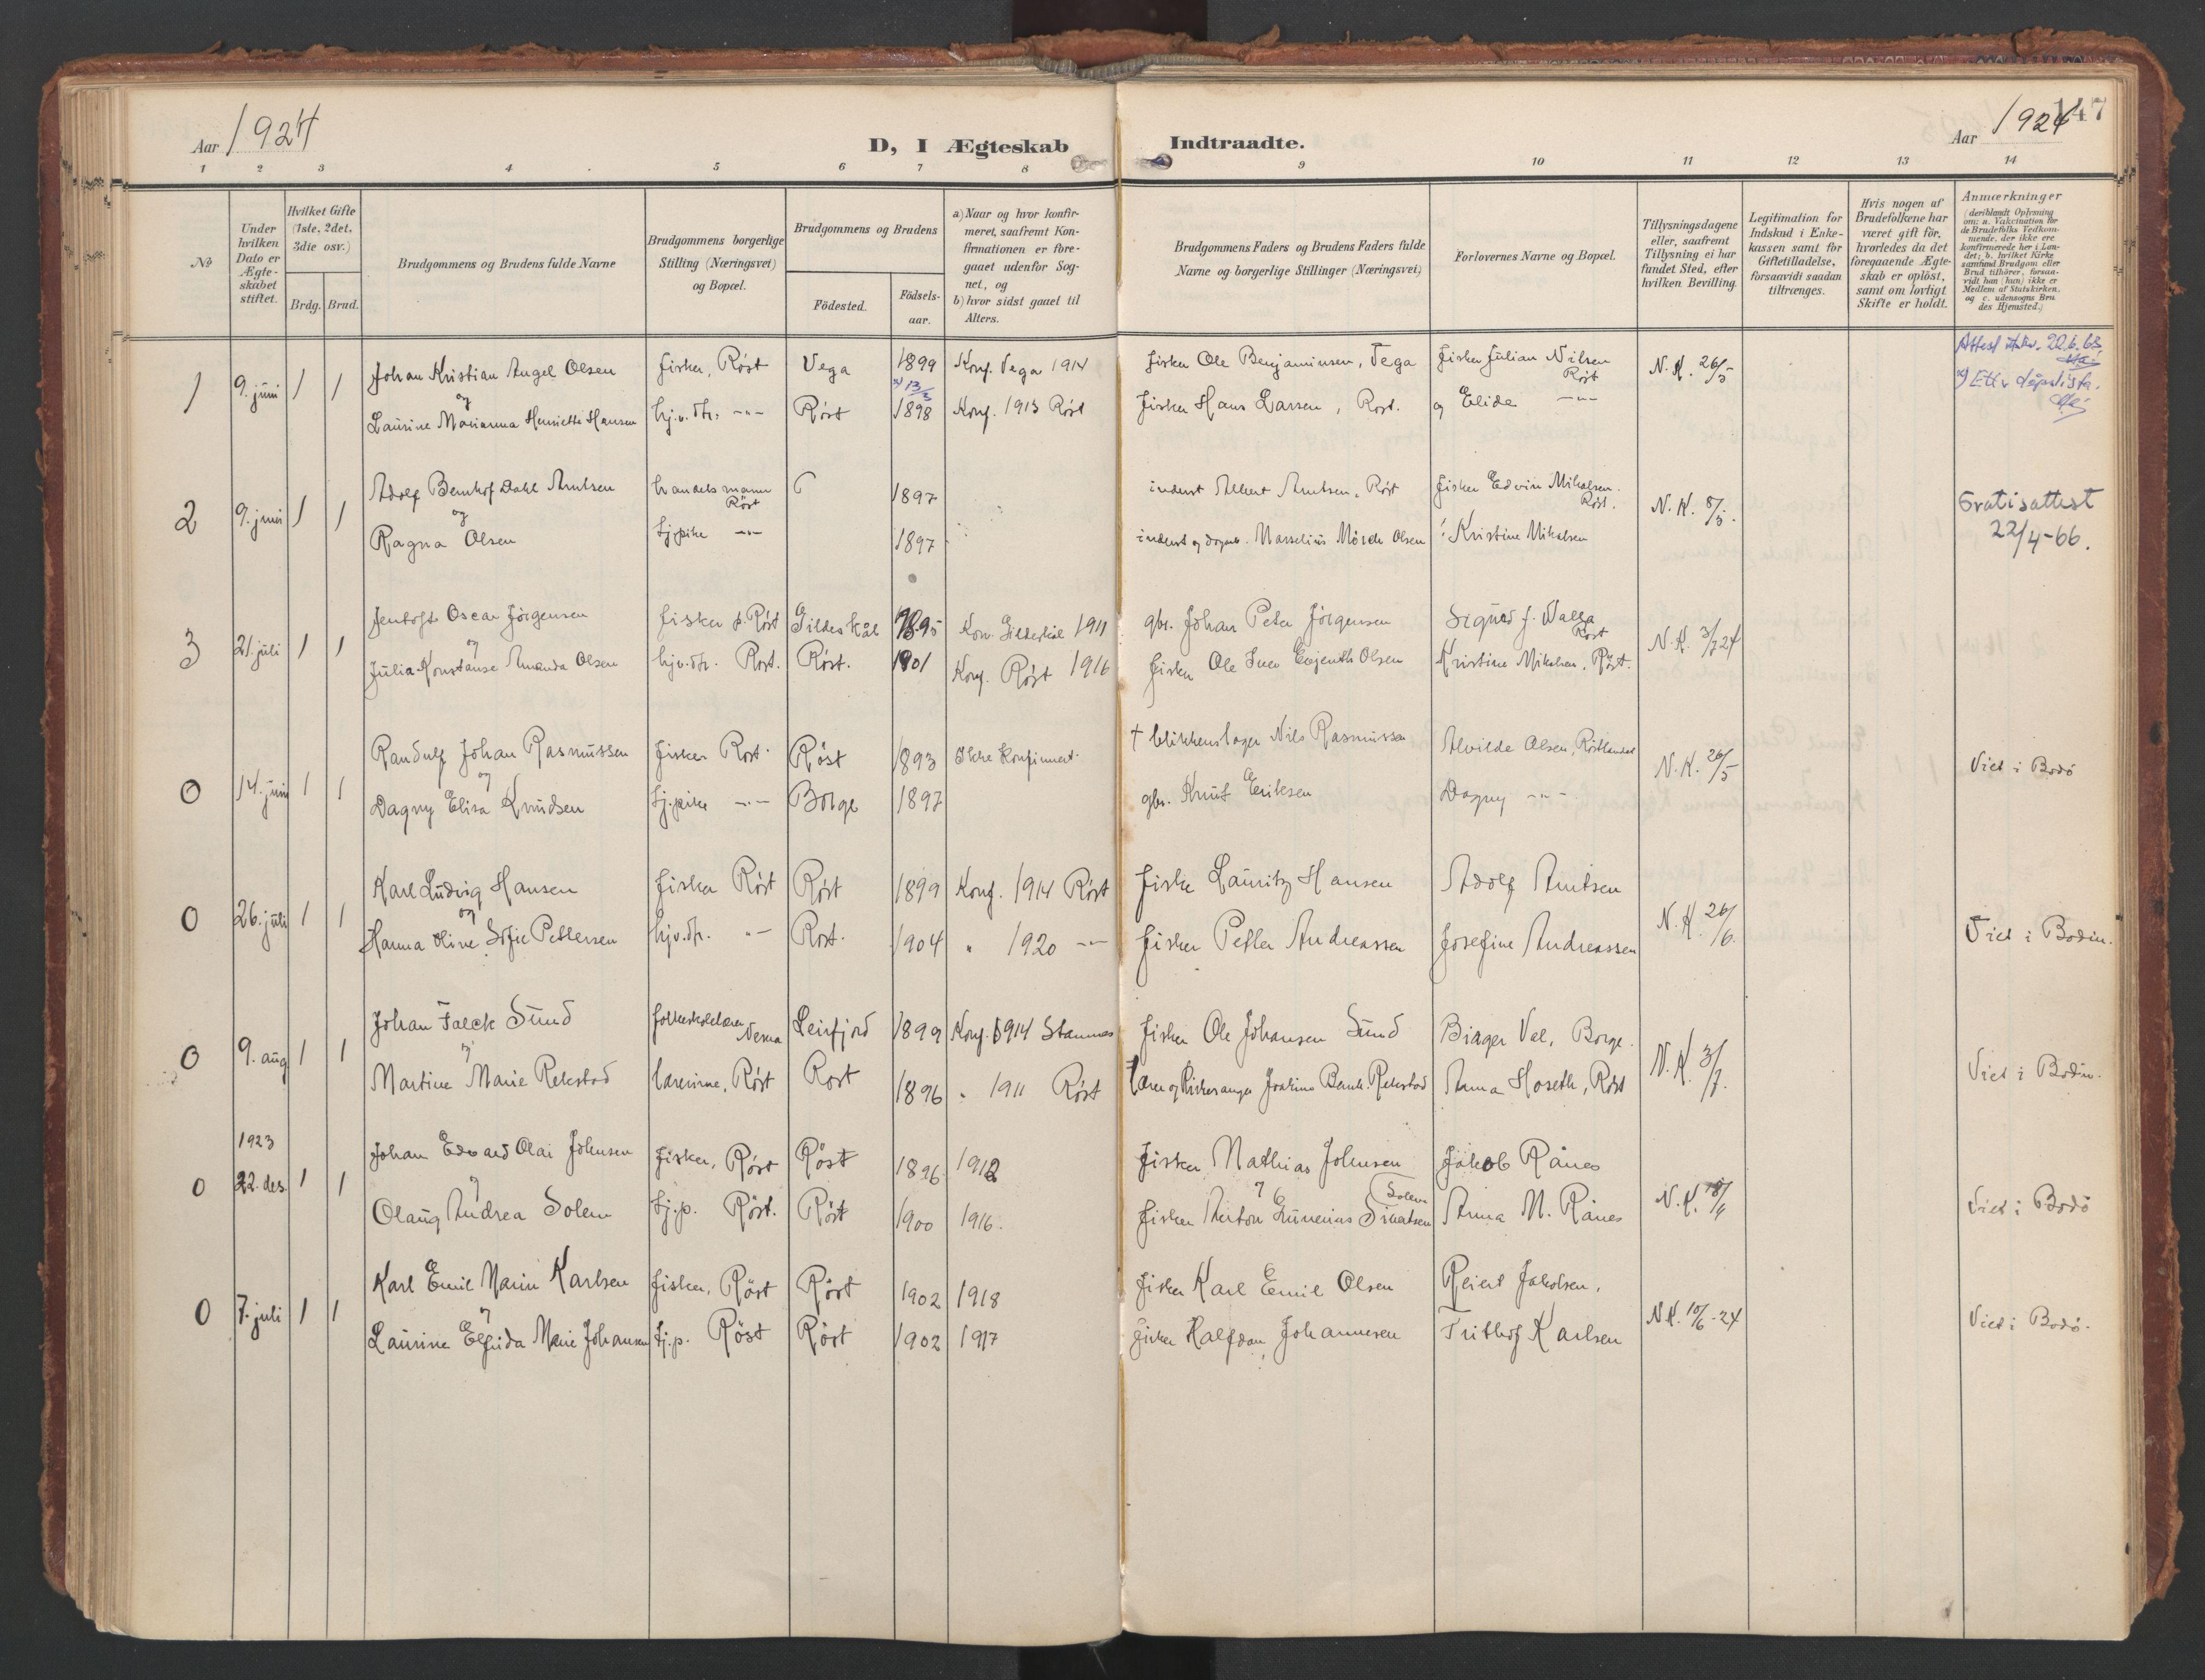 Aar 1924
D, I Ægteskab Indtraadte.
147
Aar 1924
1 2 3 4 5 6 7 8 9 10 11 12 13 14
No
Under hvilken Dato er Ægteskabet stiftet.
Hvilket Gifte (1ste, 2det, 3die osv.)
Brdg. Brud.
Brudgommens og Brudens fulde Navne
Brudgommens borgerlige Stilling (Næringsvei) og Bopæl.
Brudgommens og Brudens
Födested.
Födselsaar.
a) Naar og hvor konfirmeret, saafremt Konfirmationen er foregaaet udenfor Sognet, og
b) hvor sidst gaaet til Alters.
Brudgommens Faders og Brudens Faders fulde Navne og borgerlige Stillinger (Næringsvei)
Forlovernes Navne og Bopæl.
Tillysningsdagene eller, saafremt Tillysning ei har fundet Sted, efter hvilken Bevilling.
Legitimation for Indskud i Enkekassen samt for Giftetilladelse, forsaavidt saadan tiltrænges.
Hvis nogen af Brudefolkene har været gift för, hvorledes da det foregaaende Ægteskab er oplöst, samt om lovligt Skifte er holdt.
Anmærkninger
(deriblandt Oplysning om: a. Vakcination for de Brudefolks Vedkommende, der ikke ere konfirmerede her i Landet; b. hvilket Kirkesamfund Brudgom eller Brud tilhörer, forsaavidt han (hun) ikke er Medlem af Statskirken, og c. udensogns Brudes Hjemsted.)
1 9. juni 1 1 Johan Kristian Angel Olsen fisker, Röst Vega 1899 Konf. Vega 1914 fisker Ole Benjaminsen, Vega fisker Julian Nilsen Röst N. K. 26/5 Attest 22.6.63
og x) 13/3 x) Ett. dåpslista.
Laurine Marianna Henriette Hansen hj.v. dtr. -"- Röst 1898 Konf. 1913 Röst fisker Hans Larsen, Rost. og Elide -"-
2 9. juni 1 1 Adolf Bernhof Dahl Arntsen handelsmann Röst 1897 inderst Albert Arntsen, Röst fisker Edvin Mikalsen. Röst. N. K. 8/5. Gratisattest
og 22/4-66.
Ragna Olsen tj.pike -"- 1897 inderst og Marselius Mörch Olsen Kristine Mikalsen
3 21. juli 1 1 Jentoft Oscar Jörgensen fisker p. Röst Gildeskål 1895 Kon. Gildeskål 1911 gbr. Johan Peter Jörgensen Sigurd J. Valla Rost N. K. 3/7 24
og
Julia Konstanse Amanda Olsen hj.v.dtr. Rost. Röst. 1901 Konf. Röst 1916 fisker Ole Olsen Kristine Mikalsen, Röst.
0 14. juni 1 1 Randulf Johan Rasmussen fisker Rost Röst 1893 Ikke konfirmert. † blikkenslager Nils Rasmussen Alvilde Olsen, Röstlandet N. K. 26/5 Viet i Bodö
og
Dagny Elisa Knudsen tj.pike -"- Borge 1897 gbr. Knut Eriksen Dagny -"-
0 26. juli 1 1 Karl Ludvig Hansen fisker Röst Röst 1899 Konf. 1914 Röst fisker Lauritz Hansen Adolf Arntsen N. K. 26/6. Viet i Bodin.
og
Hanna Oline Sofie Pettersen hj.v.dtr. -"- Rost. 1904 " 1920 -"- fisker Petter Andreassen Josefine Andreassen
0 9. aug 1 1 Johan Falck Sund folkeskolelærer Nesna Leirfjord 1899 Konf. 1914 Stamnes fisker Ole Johansen Sund Birger Val, Borge. N. K. 3/7. Viet i Bodin.
og
Martine Marie Rekstad lærerinne, Röst Rost 1896 " 1911 Röst lærer og kirkesanger Joakim Bernh. Rekstad Anna Hoseth, Röst
1923
0 22. des. 1 1 Johan Edvard Olai Johnsen fisker, Röst Röst 1896 1912 fisker Mathias Johnsen Jakob Rånes N. K. 18/4 Viet i Bodö
og Solem
Olaug Andrea Solem tj.p. Röst. Röst 1900 1916. fisker Anton Simonsen Anna M. Rånes
0 7. juli 1 1 Karl Emil Marin Karlsen fisker, Röst Röst 1902 1918 fisker Karl Emil Olsen Reiert Jakobsen, N. K. 10/6-24 Viet i Bodö.
og
Laurine Elfrida Marie Johansen tj.p. Röst Röst 1902 1917 fisker Halfdan Johannesen Frithof Karlsen